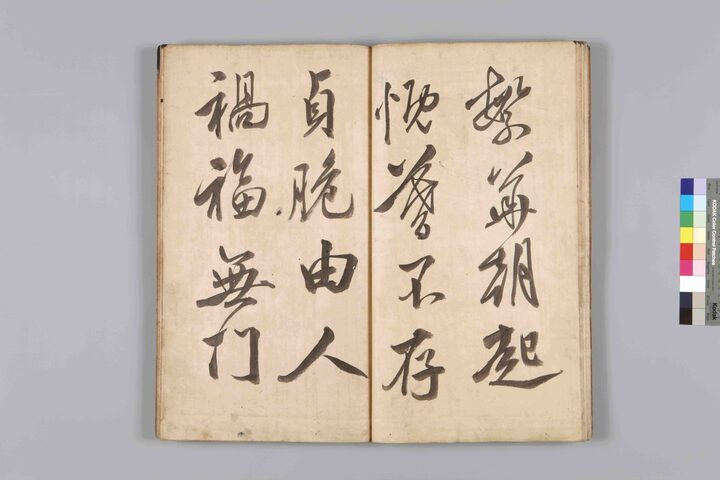 繁華朝起
慨暮不存
貞脆由人
禍福無门
KODAK Color Control Patches
Kodak